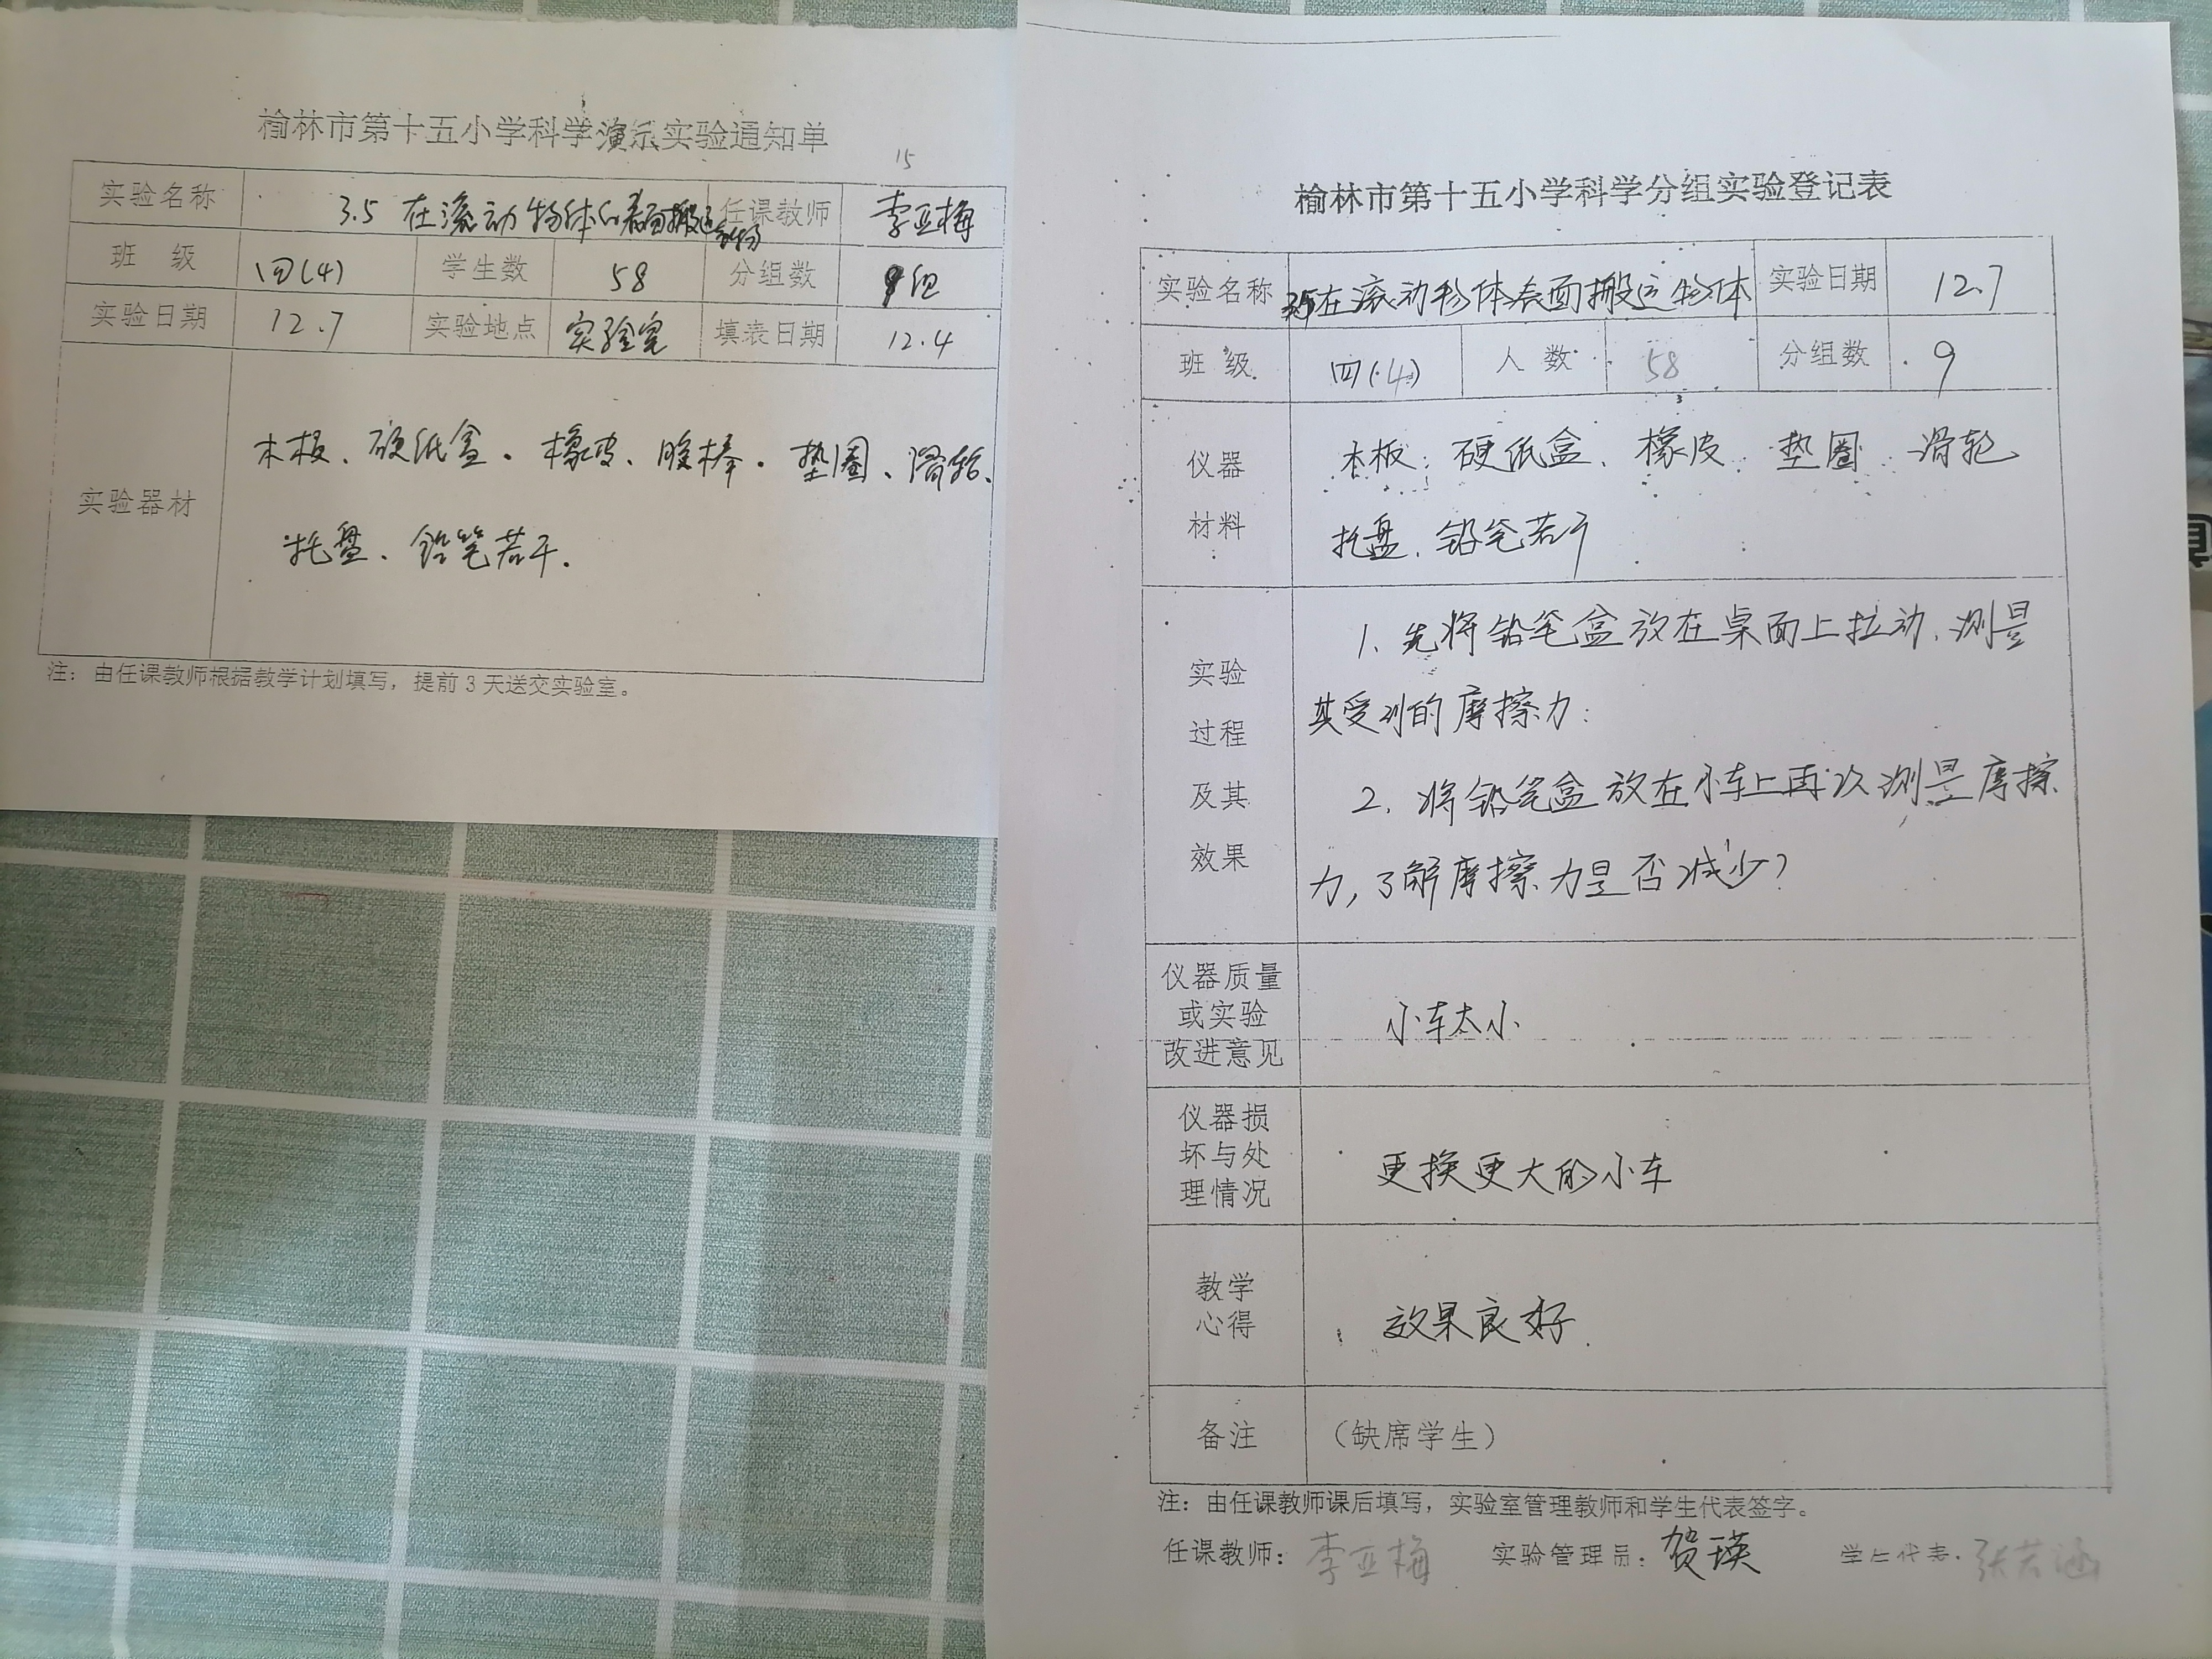 榆林市第十五小学科学演示实验通知单
15
实验名称 3.5 在滚动物体的表面搬运物体 任课教师 李亚梅
班 级 四(4) 学生数 58 分组数 9组
实验日期 12.7 实验地点 实验室 填表日期 12.4
实验器材
木板、硬纸盒、橡皮、胶棒、垫圈、滑轮、
托盘、铅笔若干.
注：由任课教师根据教学计划填写，提前 3 天送交实验室。
榆林市第十五小学科学分组实验登记表
实验名称 3.5在滚动物体表面搬运物体 实验日期 12.7
班 级 四(4) 人 数 58 分组数 9
仪器
材料
木板、硬纸盒、橡皮、垫圈、滑轮
托盘、铅笔若干
实验
过程
及其
效果
1、先将铅笔盒放在桌面上拉动，测量
其受到的摩擦力；
2、将铅笔盒放在小车上再次测量摩擦
力，了解摩擦力是否减少？
仪器质量
或实验
改进意见
小车太小
仪器损
坏与处
理情况
更换更大的小车
教学
心得
效果良好.
备注 （缺席学生）
注：由任课教师课后填写，实验室管理教师和学生代表签字。
任课教师：李亚梅 实验管理员：贺瑛 学生代表：张若涵